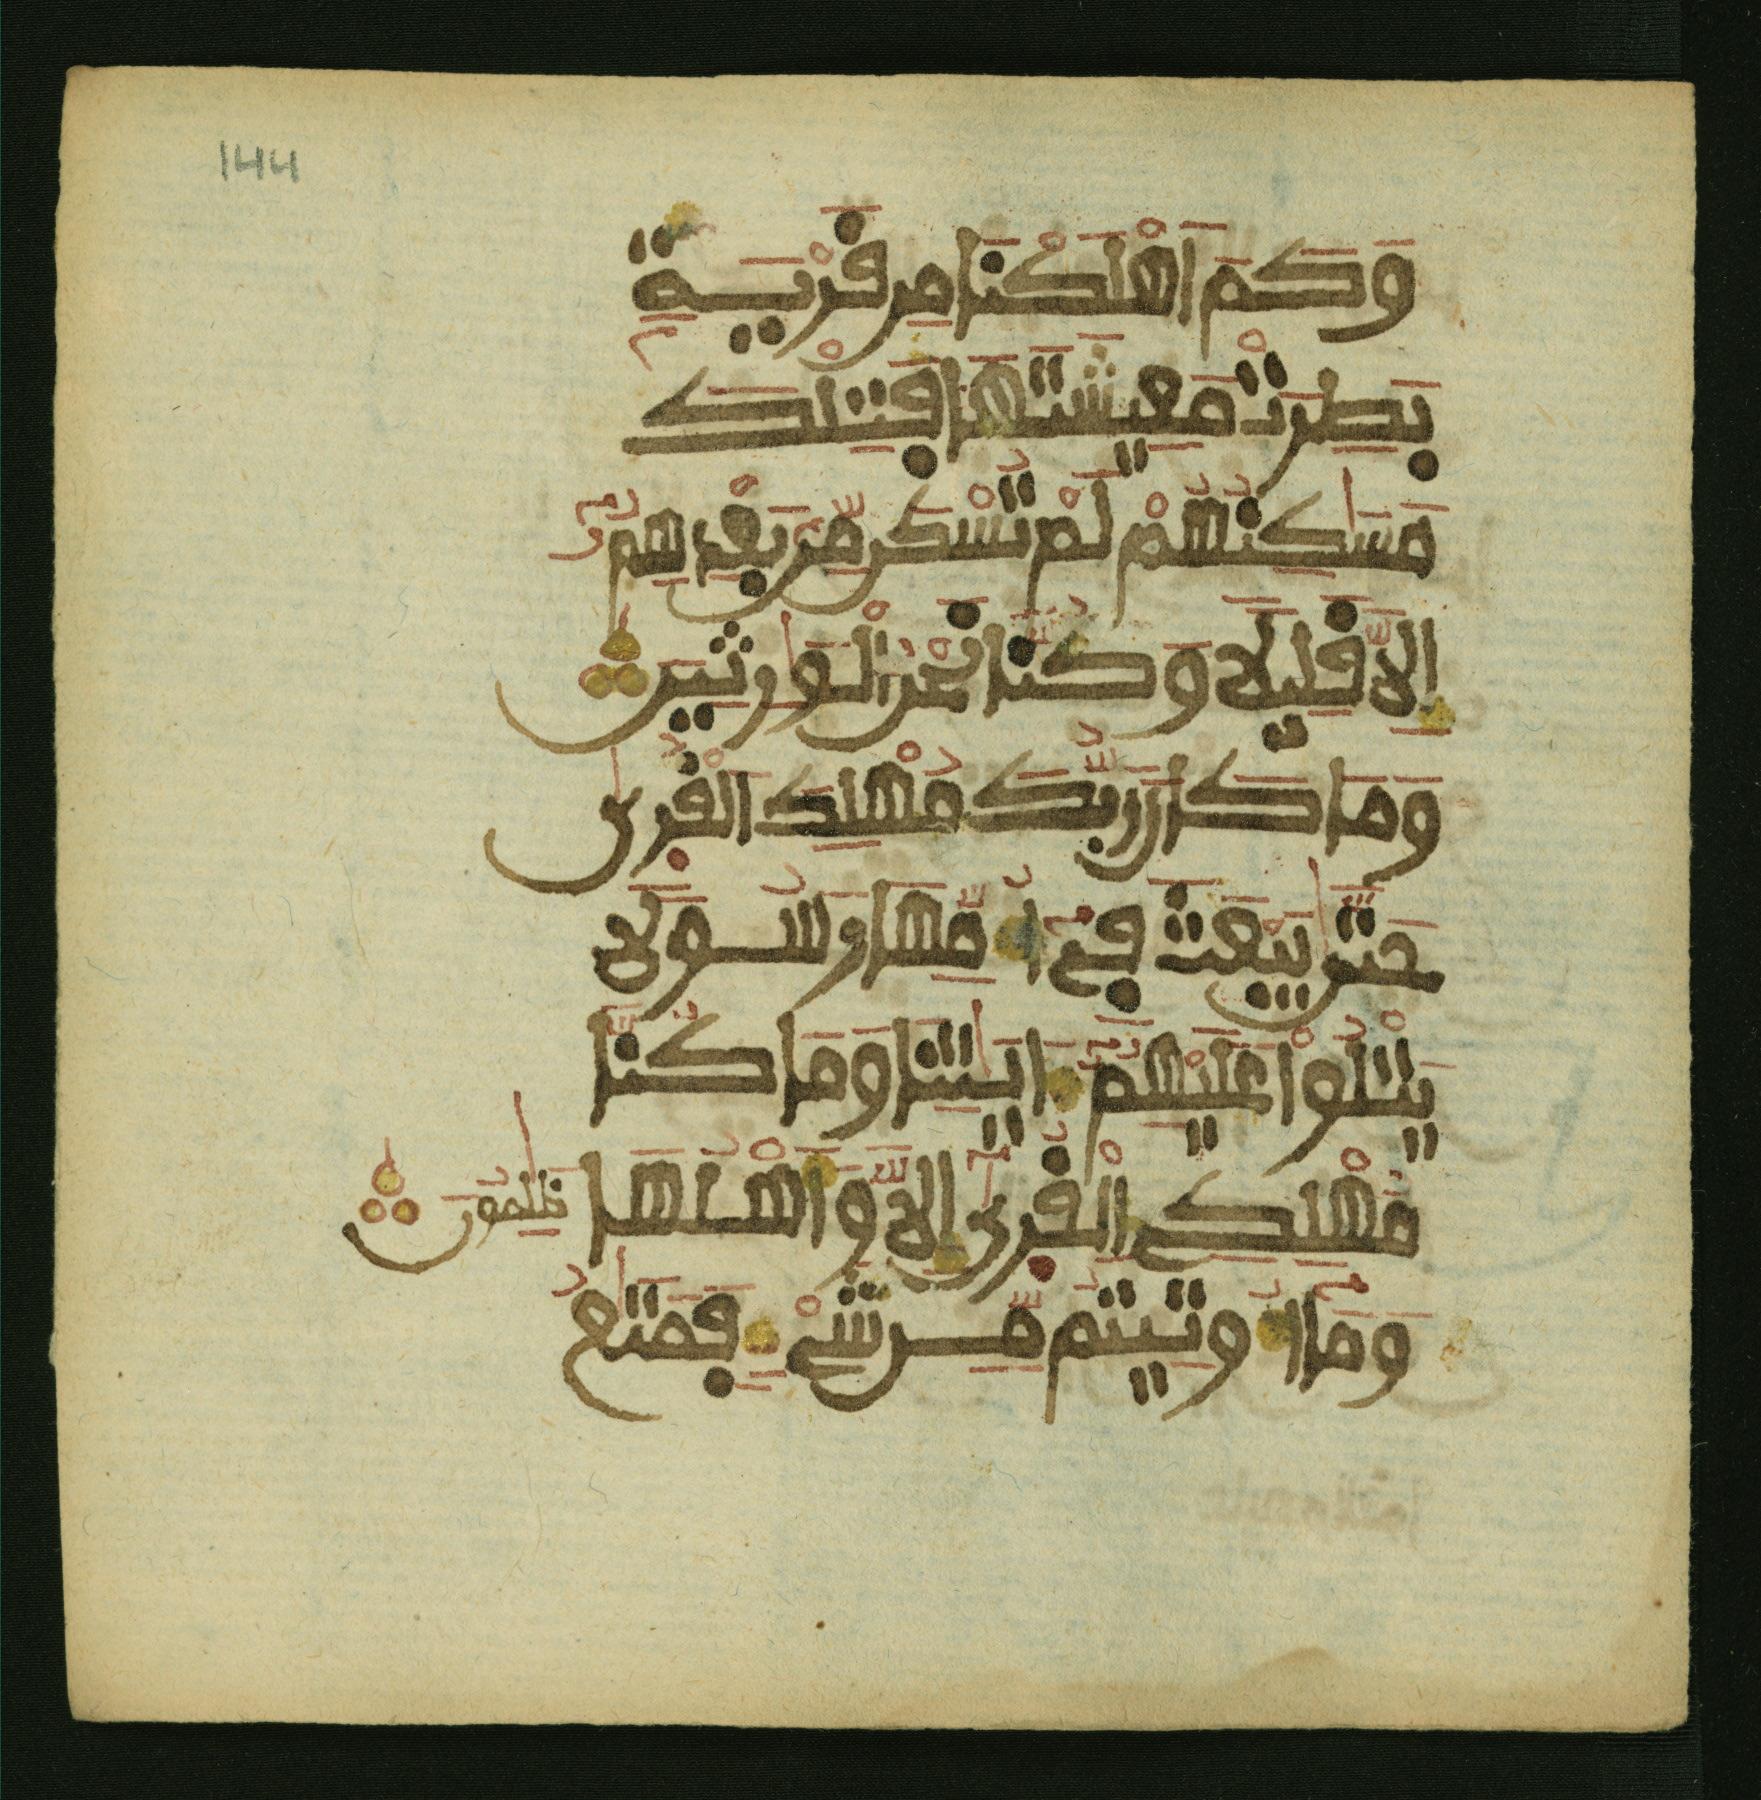 144
وَكَمَ اَهْلَكْنَا مِن قَرْيَةِۢ
بَطِرَتْ مَعِيشَتَهَا فَتِلْكَ
مَسَٰكِنُهُمْ لَمْ تُسْكَن مِّنۢ بَعْدِهِمُۥٓ
إِلَّا قَلِيلًا وَكُنَّا نَحْنُ اَلْوَٰرِثِينَ
وَمَا كَانَ رَبُّكَ مُهْلِكَ اَلْقُرَىٰ
حَتَّىٰ يَبْعَثَ فِىٓ أُمِّهَا رَسُولًا
يَتْلُواْ عَلَيْهِمُۥٓ ءَايَٰتِنَا وَمَا كُنَّا
مُهْلِكِى اَلْقُرَىٰٓ إِلَّا وَأَهْلُهَا ظَٰلِمُونَ
وَمَآ أُوتِيتُم مِّن شَىْءٍ فَمَتَٰعُ